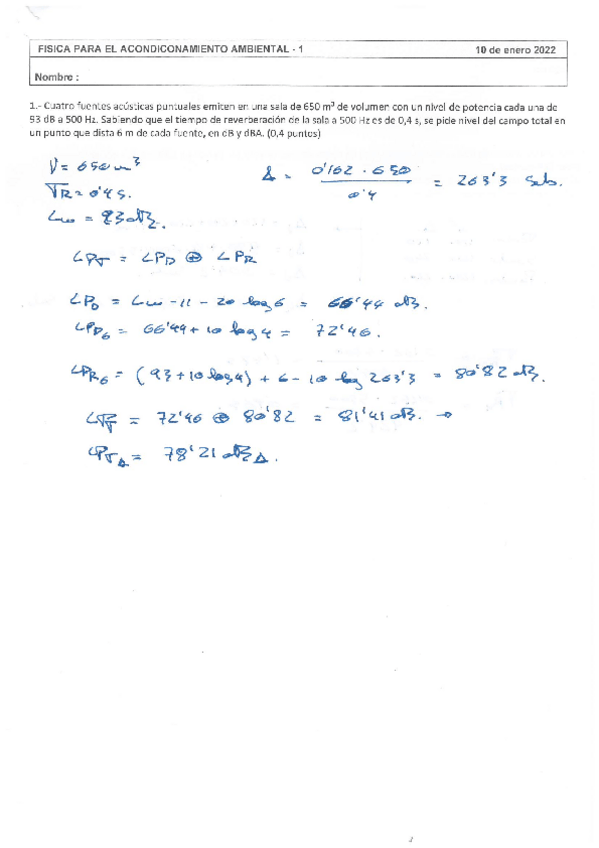 FISICA PARA EL ACONDICONAMIENTO AMBIENTAL - 1 10 de enero 2022
Nombre :
1.- Cuatro fuentes acústicas puntuales emiten en una sala de 650 m³ de volumen con un nivel de potencia cada una de
93 dB a 500 Hz. Sabiendo que el tiempo de reverberación de la sala a 500 Hz es de 0,4 s, se pide nivel del campo total en
un punto que dista 6 m de cada fuente, en dB y dBA. (0,4 puntos)
V = 650 m³ A = 0'162 · 650 / 0'4 = 263'3 Sab.
TR = 0'4 s.
Lw = 93 dB.
LPT = LPD ⊕ LPR
LPD = Lw - 11 - 20 log 6 = 66'44 dB.
LPD6 = 66'44 + 10 log 4 = 72'46.
LPR6 = (93 + 10 log 4) + 6 - 10 log 263'3 = 80'82 dB.
LPT = 72'46 ⊕ 80'82 = 81'41 dB. →
LPTA = 78'21 dBA.